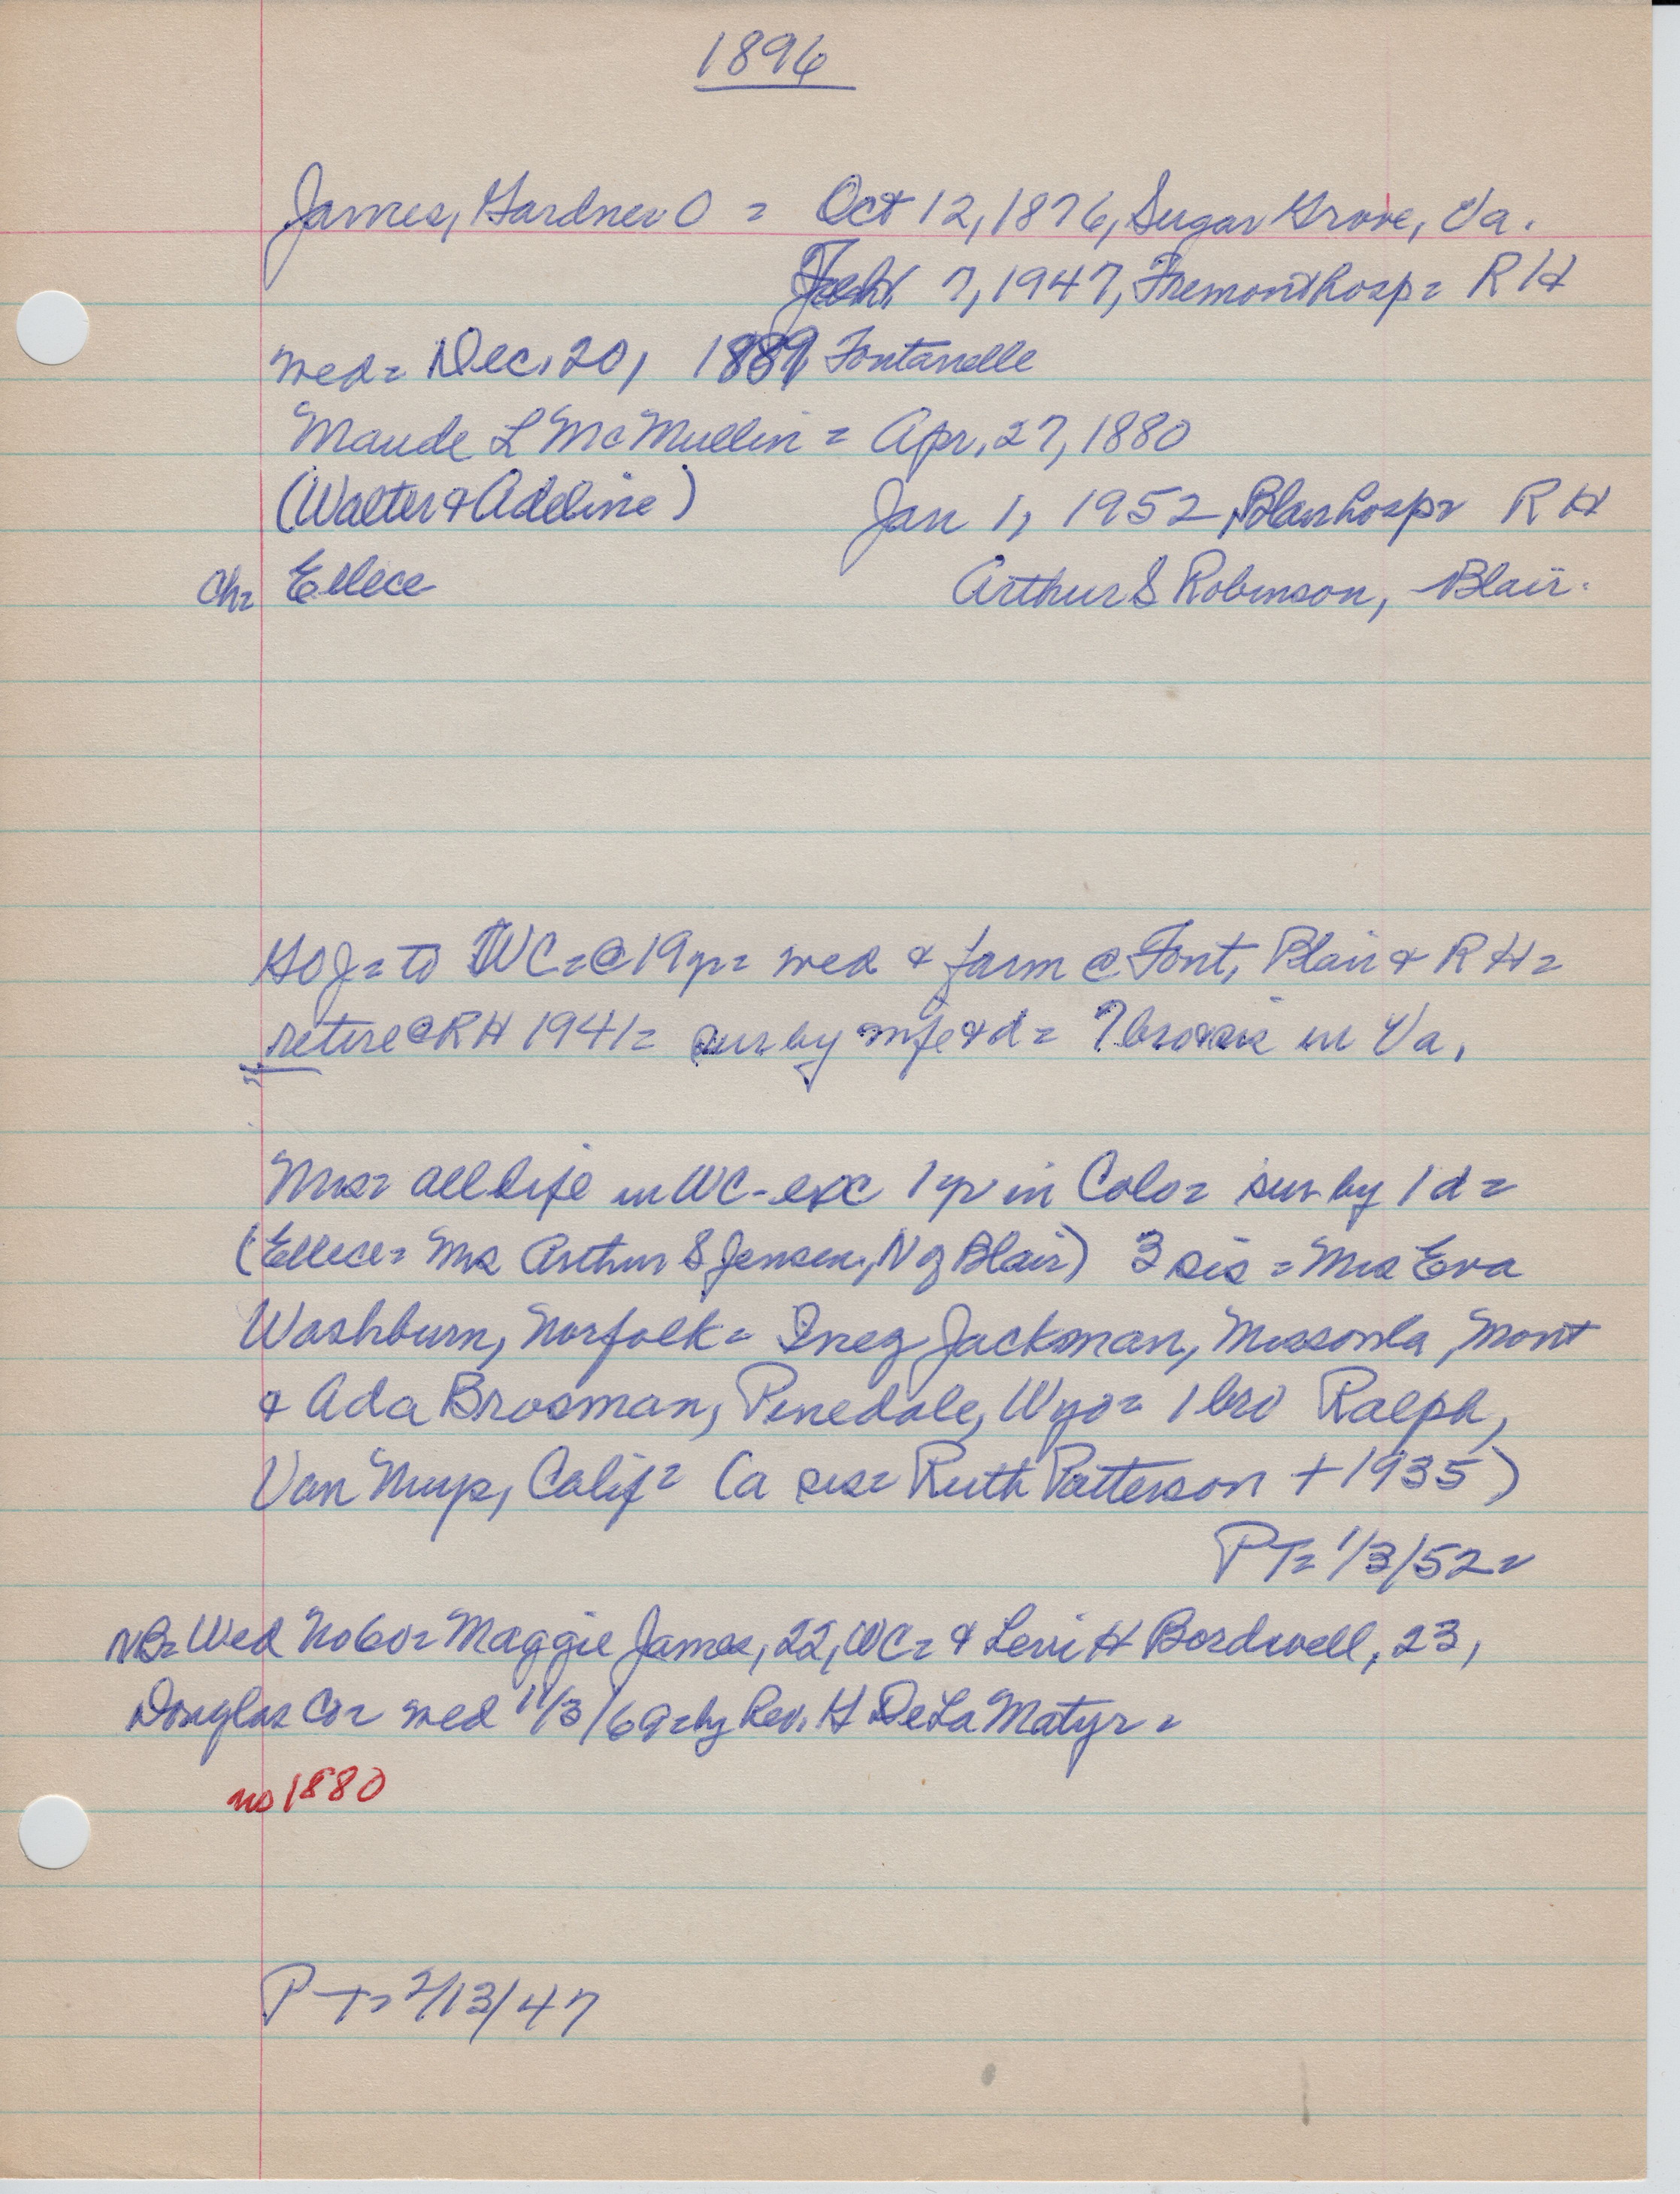 1896
James, Gardner O = Oct 12, 1876, Sugar Grove, Va.
Feb 7, 1947, Fremont hosp = R H
wed = Dec. 20, Fontanelle
Maude L McMullin = Apr. 27, 1880
(Walter & Adeline) Jan 1, 1952, Blair hosp = R H
Ch = Ellece Arthur S Robinson, Blair.
GOJ = to WC = @ 19 yr = wed & farm @ Font, Blair & R H =
retire @ RH 1941 = sur by wife & d = ? bro & sis in Va.
Mrs = all life in WC - exc 1 yr in Colo = sur by 1 d =
(Ellece = Mrs Arthur S Jensen, N of Blair) 3 sis = Mrs Eva
Washburn, Norfolk = Inez Jackman, Missoula, Mont
& Ada Brosman, Pinedale, Wyo = 1 bro Ralph,
Van Nuys, Calif = (a sis = Ruth Patterson + 1935)
PT = 1/3/52 =
NB = Wed No 60 = Maggie James, 22, WC = & Levi H Bordwell, 23,
Douglas Co = wed 11/3/69 = by Rev. H DeLaMatyr =
no 1880
PT = 2/13/47